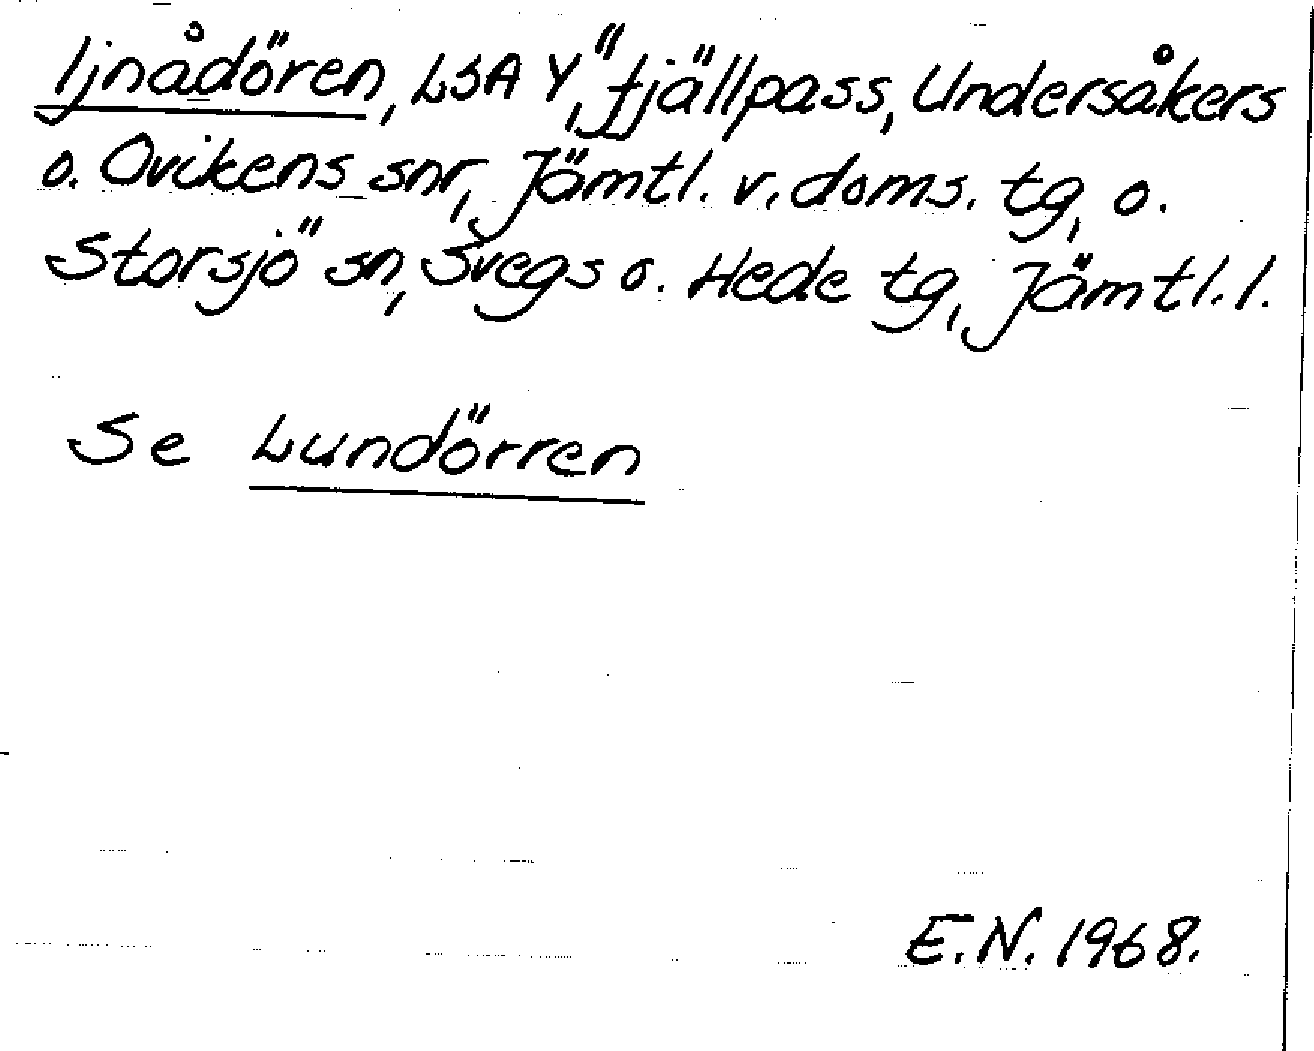 Ijnådören, LSA Y, "fjällpass, Undersåkers
o. Ovikens snr, Jämtl. v. doms. tg, o.
Storsjö" sn, Svegs o. Hede tg, Jämtl. l.
Se Lundörren
E.N. 1968.